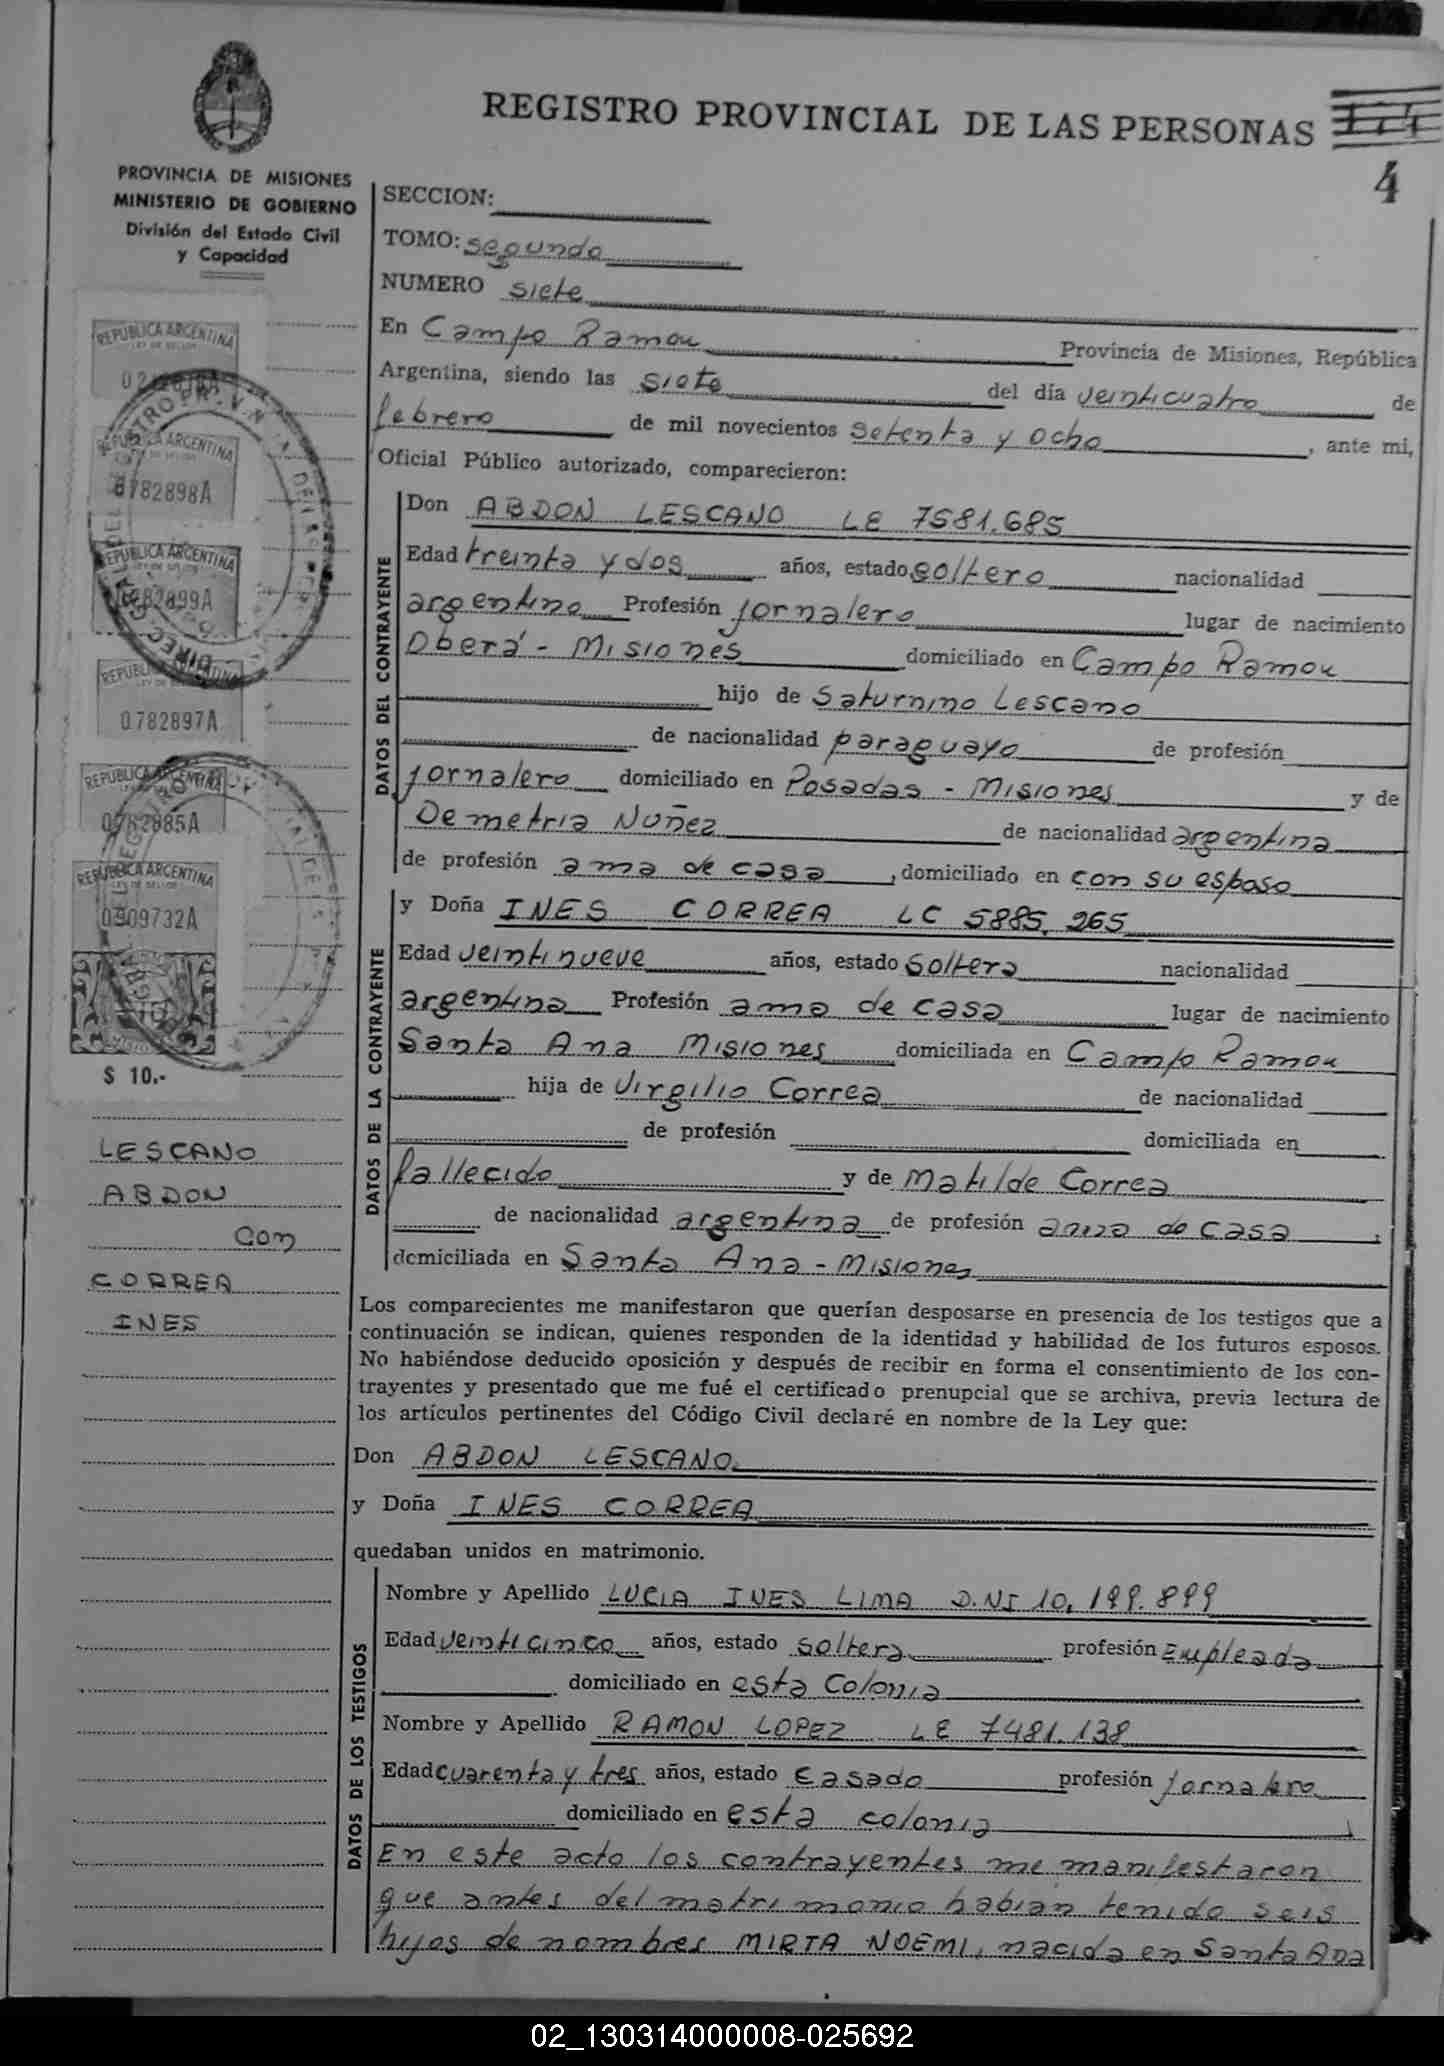 REGISTRO PROVINCIAL DE LAS PERSONAS
4
PROVINCIA DE MISIONES
MINISTERIO DE GOBIERNO
División del Estado Civil
y Capacidad
REPUBLICA ARGENTINA
LEY DE SELLOS
REPUBLICA ARGENTINA
0782898A
REPUBLICA ARGENTINA
0782899A
REPUBLICA ARGENTINA
0782897A
REPUBLICA ARGENTINA
0782885A
REPUBLICA ARGENTINA
LEY DE SELLOS
0309732A
MISIONES
$ 10.-
LESCANO
ABDON
con
CORREA
INES
SECCION:
TOMO: segundo
NUMERO siete
En Campo Ramon Provincia de Misiones, República
Argentina, siendo las siete del día veinticuatro de
febrero de mil novecientos setenta y ocho, ante mi,
Oficial Público autorizado, comparecieron:
DATOS DEL CONTRAYENTE
Don ABDON LESCANO LE 7581.685
Edad treinta y dos años, estado soltero nacionalidad
argentino Profesión jornalero lugar de nacimiento
Oberá - Misiones domiciliado en Campo Ramon
hijo de Saturnino Lescano
de nacionalidad paraguayo de profesión
jornalero domiciliado en Posadas - Misiones y de
Demetria Nuñez de nacionalidad argentina
de profesión ama de casa, domiciliado en con su esposo
DATOS DE LA CONTRAYENTE
y Doña INES CORREA LC 5885.265
Edad veintinueve años, estado soltera nacionalidad
argentina Profesión ama de casa lugar de nacimiento
Santa Ana Misiones domiciliada en Campo Ramon
hija de Virgilio Correa de nacionalidad
de profesión domiciliada en
fallecido y de Matilde Correa
de nacionalidad argentina de profesión ama de casa,
domiciliada en Santa Ana - Misiones
Los comparecientes me manifestaron que querían desposarse en presencia de los testigos que a
continuación se indican, quienes responden de la identidad y habilidad de los futuros esposos.
No habiéndose deducido oposición y después de recibir en forma el consentimiento de los con-
trayentes y presentado que me fué el certificado prenupcial que se archiva, previa lectura de
los artículos pertinentes del Código Civil declaré en nombre de la Ley que:
Don ABDON LESCANO
y Doña INES CORREA
quedaban unidos en matrimonio.
DATOS DE LOS TESTIGOS
Nombre y Apellido LUCIA INES LIMA D.NI 10.199.899
Edad veinticinco años, estado soltera profesión Empleada
domiciliado en esta Colonia
Nombre y Apellido RAMON LOPEZ LE 7481.138
Edad cuarenta y tres años, estado casado profesión jornalero
domiciliado en esta colonia
En este acto los contrayentes me manifestaron
que antes del matrimonio habian tenido seis
hijos de nombres MIRTA NOEMI, nacida en Santa Ana
02_130314000008-025692